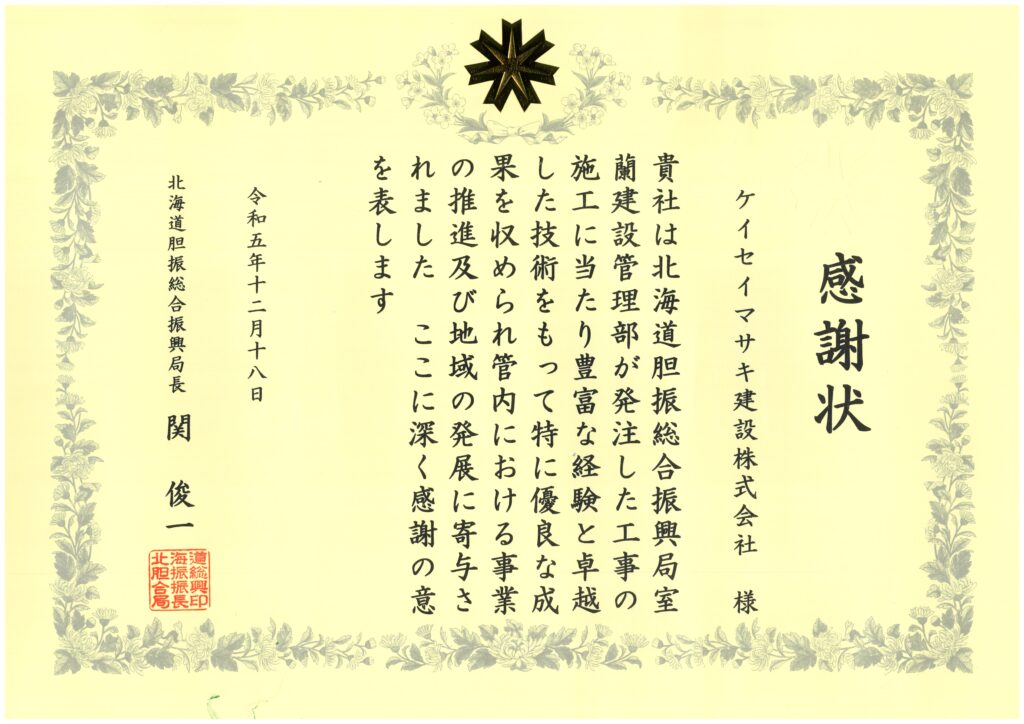 感謝状
ケイセイマサキ建設株式会社 様
貴社は北海道胆振総合振興局室
蘭建設管理部が発注した工事の
施工に当たり豊富な経験と卓越
した技術をもって特に優良な成
果を収められ管内における事業
の推進及び地域の発展に寄与さ
れました ここに深く感謝の意
を表します
令和五年十二月十八日
北海道胆振総合振興局長 関 俊一
道総興印
海振振長
北胆合局